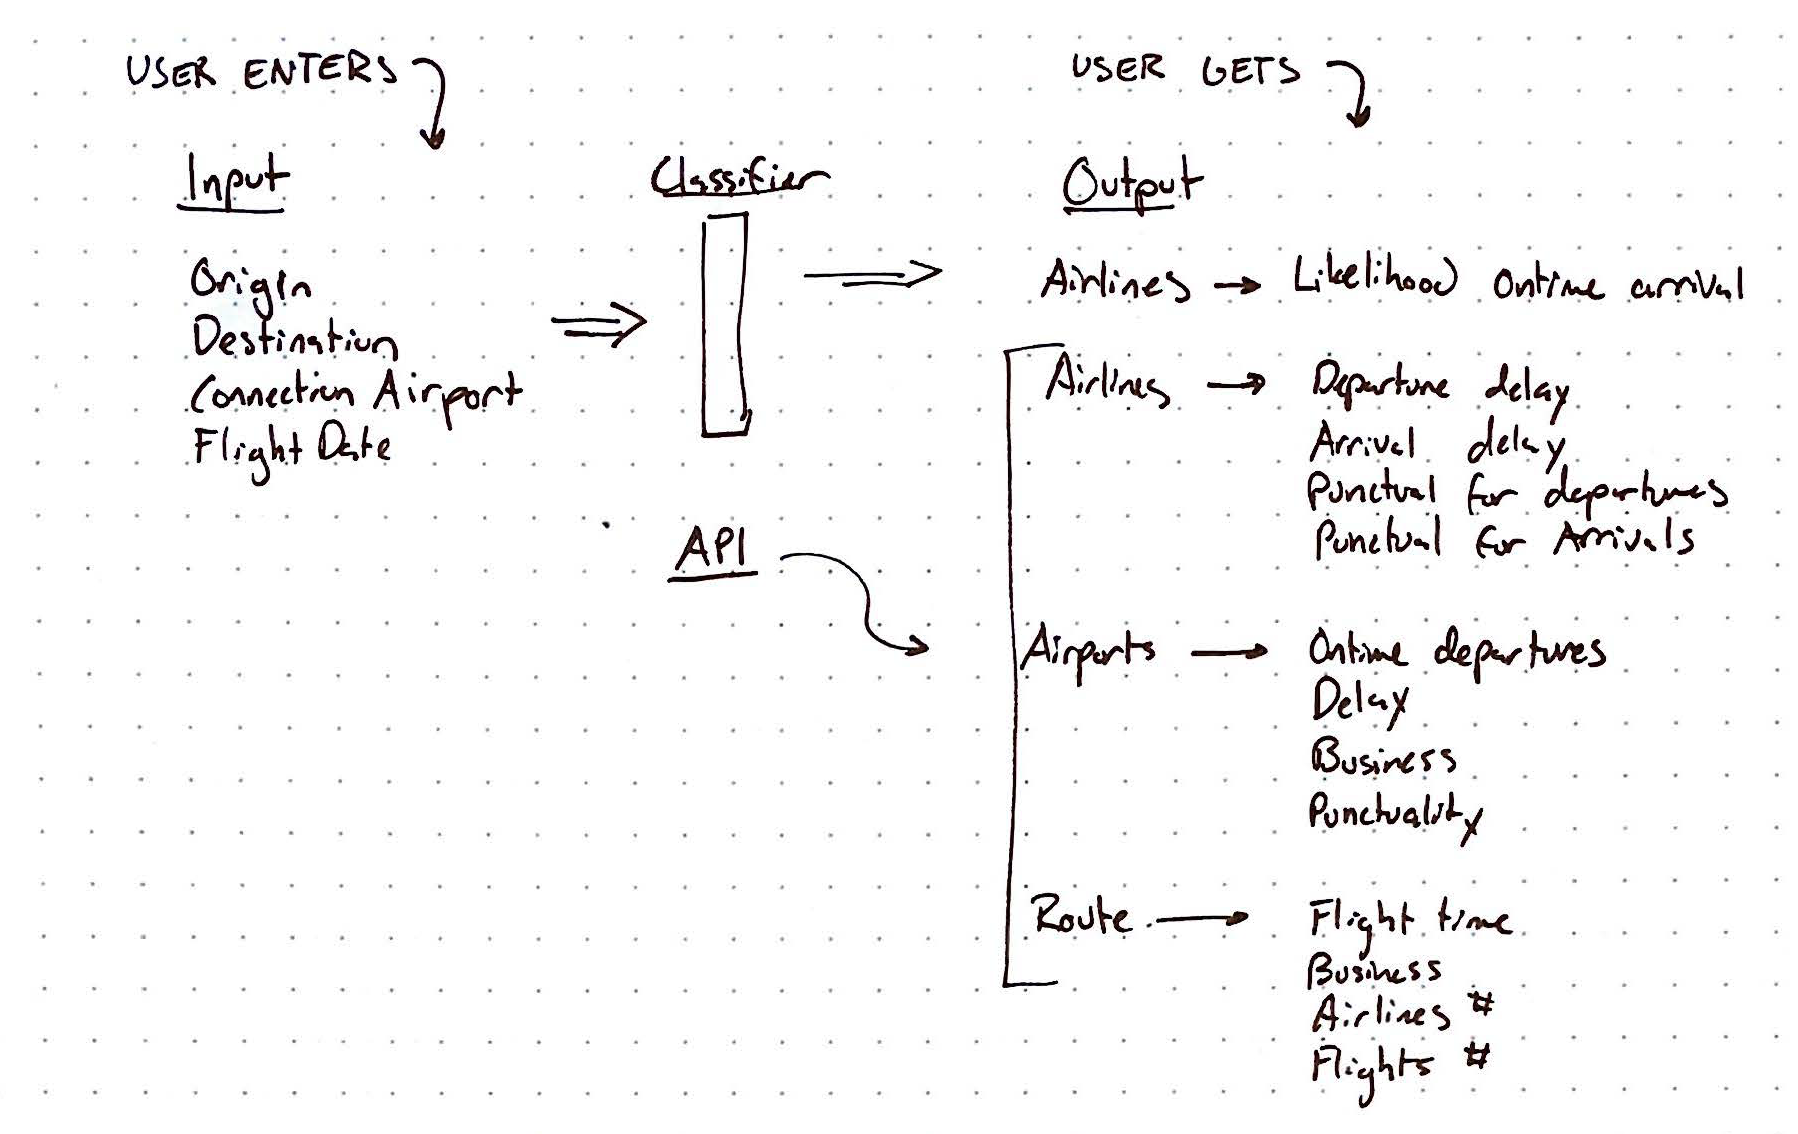 USER ENTERS
Input
Origin
Destination
Connection Airport
Flight Date
Classifier
API
USER GETS
Output
Airlines → Likelihood Ontime arrival
Airlines → Departure delay
Arrival delay
Punctual for departures
Punctual for Arrivals
Airports → Ontime departures
Delay
Business
Punctuality
Route → Flight time
Business
Airlines #
Flights #